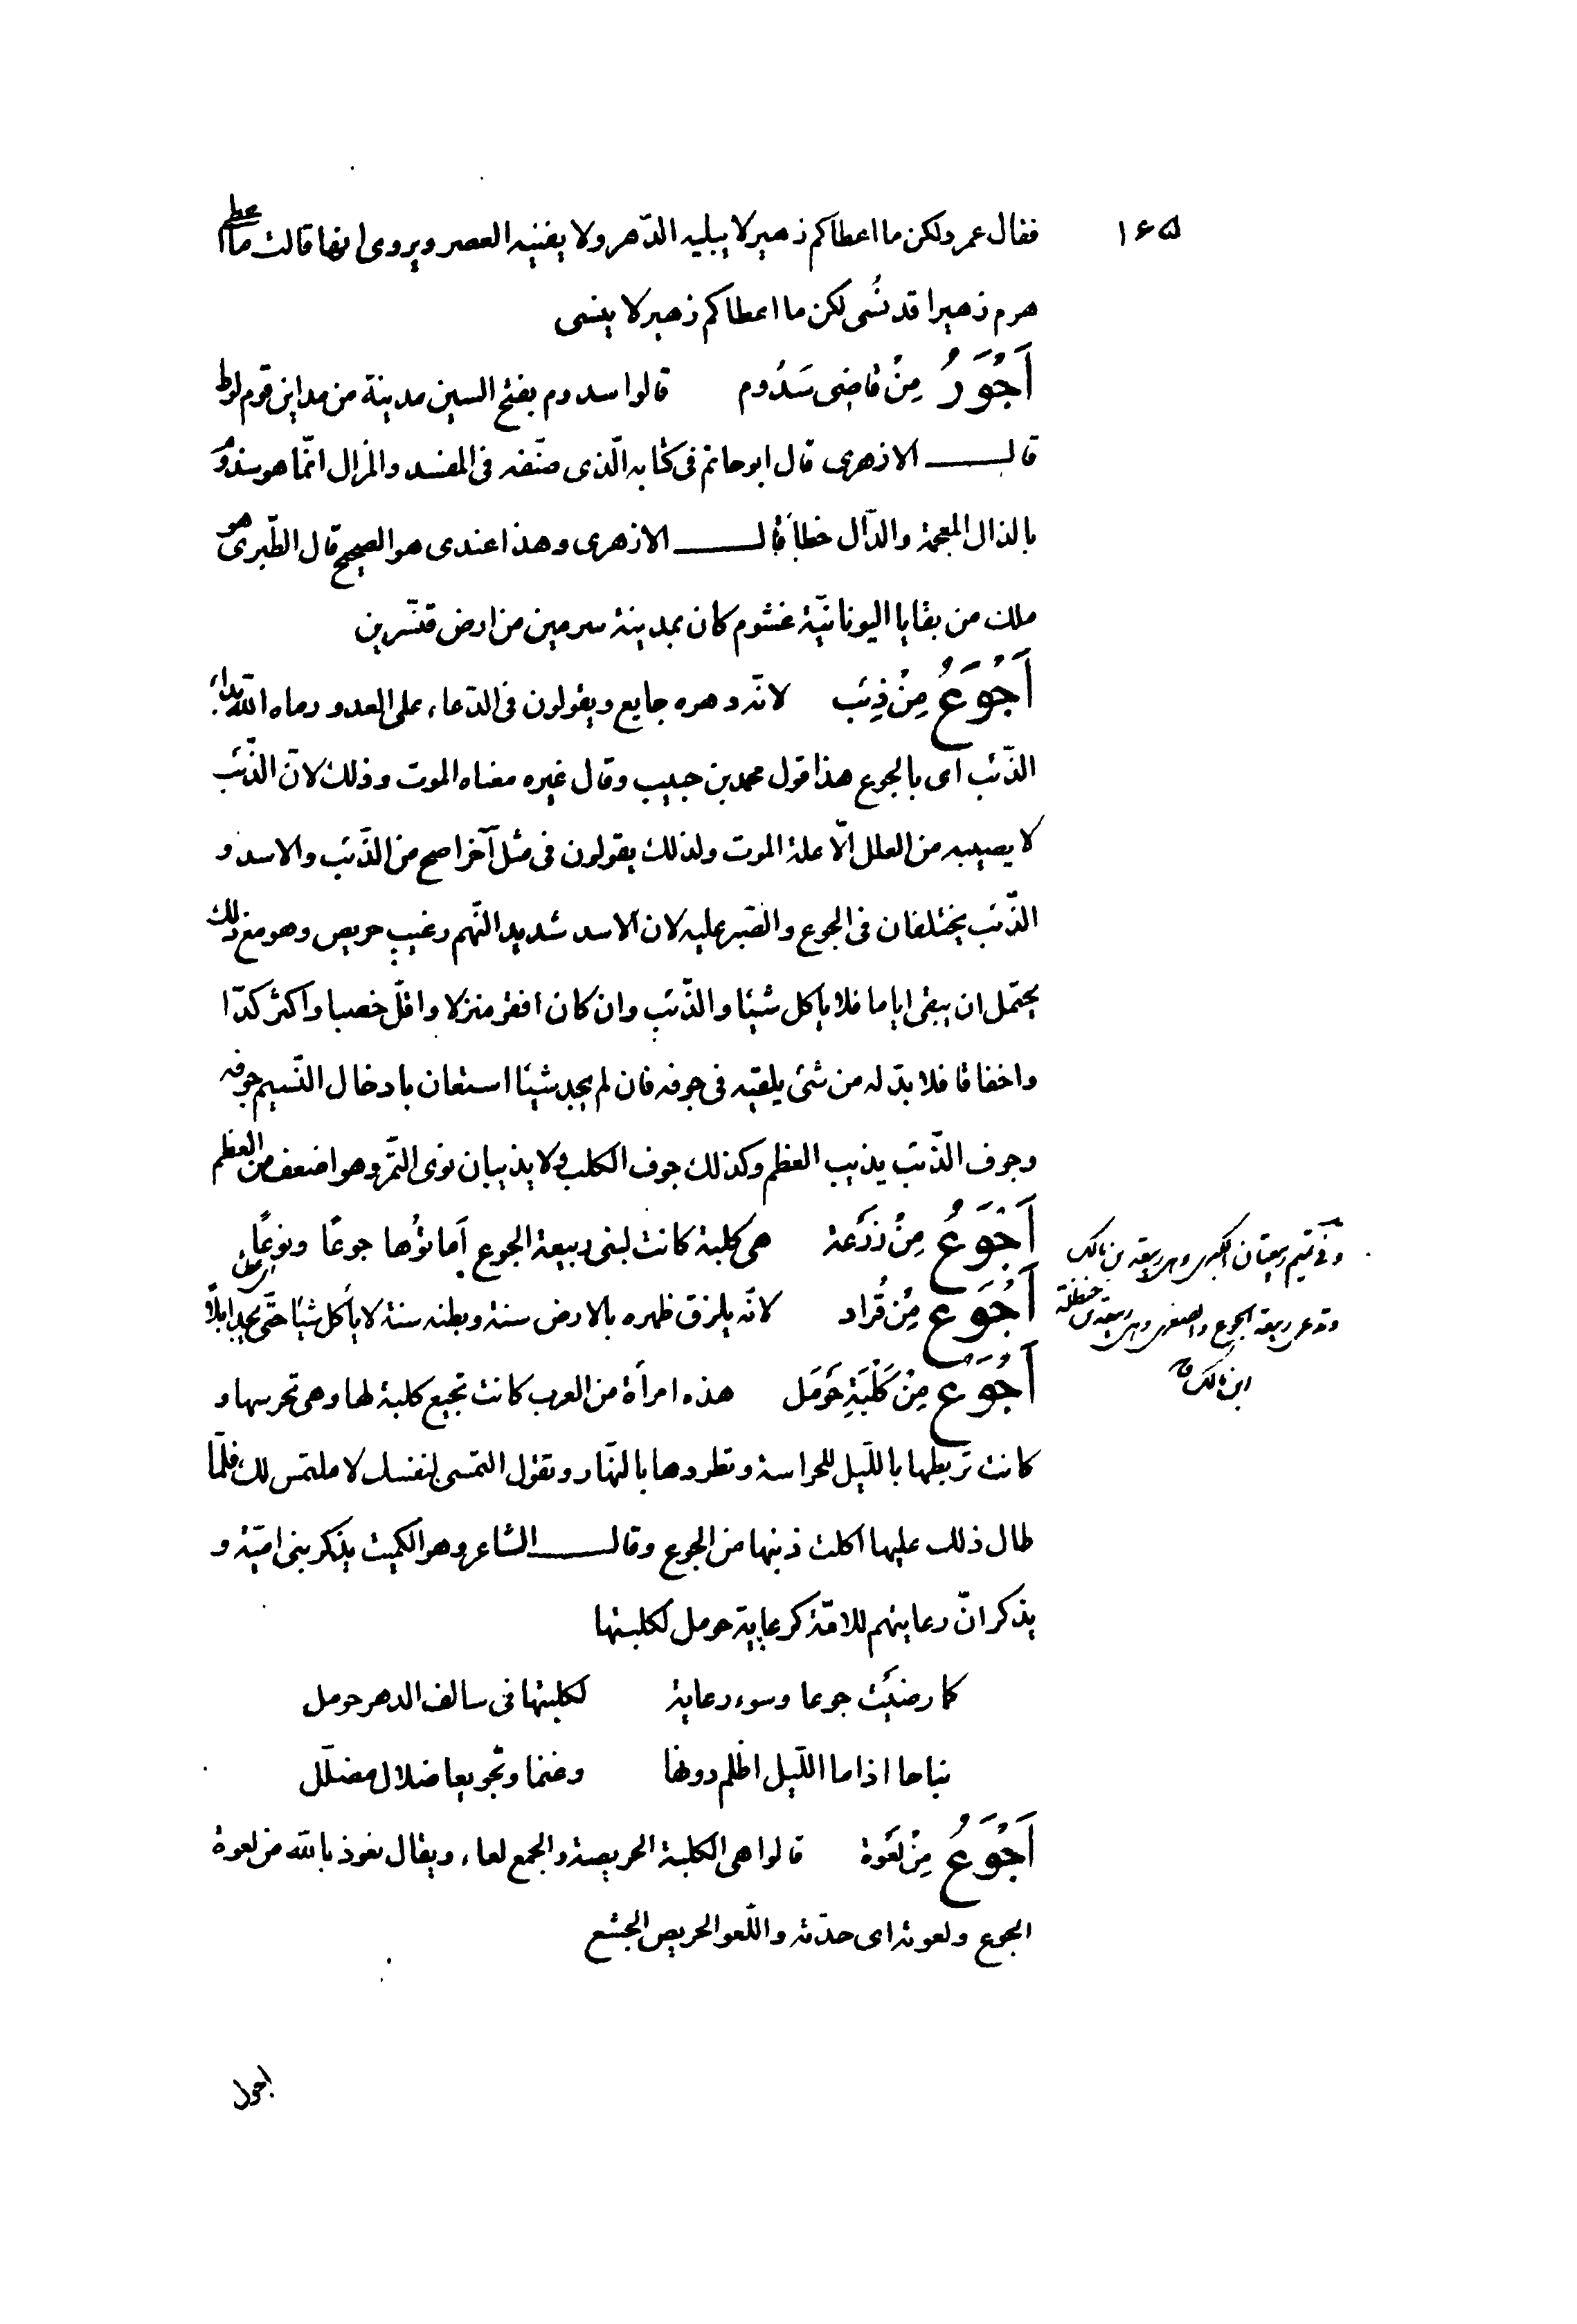 ۱۶۵
فقال عمر ولكن ما اعطاكم زهير لا يبليه الدّهر ولا يفنيه العصر ويروى انها قالت ما اعطى
هرم زهيرا قد نُسى لكن ما اعطاكم زهير لا ينسى
اَجْوَرُ مِنْ قاضِى سَدُوم قالوا سدوم بفتح السين مدينة من مداين قوم لوط
قال الازهرى قال ابو حاتم فى كتابه الّذى صنّفه فى المفسد والمزال انّما هو سذوم
بالذال المعجمة والدّال خطأ قال الازهرى وهذا عندى هو الصحيح قال الطّبرى هو
ملك من بقايا اليونانيّة غشوم كان بمدينة سرمين من ارض قنّسرين
اَجْوَعُ مِنْ ذِئب لانّه دهره جايع ويقولون فى الدّعاء على العدو رماه اللّه بداء
الذّئب اى بالجوع هذا قول محمد بن حبيب وقال غيره معناه الموت وذلك لانّ الذّئب
لا يصيبه من العلل الّا علة الموت ولذلك يقولون فى مثل آخر اصح من الذّئب والاسد و
الذّئب يختلفان فى الجوع والصّبر عليه لان الاسد شديد النّهم رغيب حريص وهو مع ذلك
يحتمل ان يبقى اياما فلا يأكل شيئا والذّئب وان كان افقر منزلا واقلّ خصبا واكثر كدّا
واخفاقا فلا بدّ له من شئ يلقيه فى جوفه فان لم يجد شيئا استعان بادخال النّسيم جوفه
وجوف الذّئب يذيب العظم وكذلك جوف الكلب ولا يذيبان نوى التّمر وهو اضعف من العظم
اَجْوَعُ مِنْ زُرْعَة هى كلبة كانت لبنى ربيعة الجوع اَماتوُها جوعًا ونوعًا
اَجْوَعُ مِنْ قُراد لانّه يلزق ظهره بالارض سنة وبطنه سنة لا يأكل شيئا حتّى يجد ابلًا
اَجْوَعُ مِنْ كَلْبَةِ حَوْمَل هذه امرأة من العرب كانت تجيع كلبة لها وهى تحرسها و
كانت تربطها بالليل للحراسة وتطردها بالنّهار وتقول التمسى لنفسك لا ملتمس لك فلمّا
طال ذلك عليها اكلت ذنبها من الجوع وقال الشاعر وهو الكميت يذكر بنى اميّة و
يذكر انّ رعايتهم للامّة كرعاية حومل لكلبتها
كما رضيت جوعا وسوء رعاية لكلبتها فى سالف الدهر حومل
نباحا اذا ما اللّيل اظلم دونها وغنما وتجويعا ضلال مضلّل
اَجْوَعُ مِنْ لَعْوَة قالوا هى الكلبة الحريصة والجمع لعاء ويقال نعوذ باللّه من لعوة
الجوع ولعوته اى حدّته واللّعو الحريص الجشع
وفى تميم ربيعتان الكبرى وهى ربيعة بن مالك
وتدعى ربيعة الجوع والصغرى وهى ربيعة بن حنظلة
ابن مالك
اجول